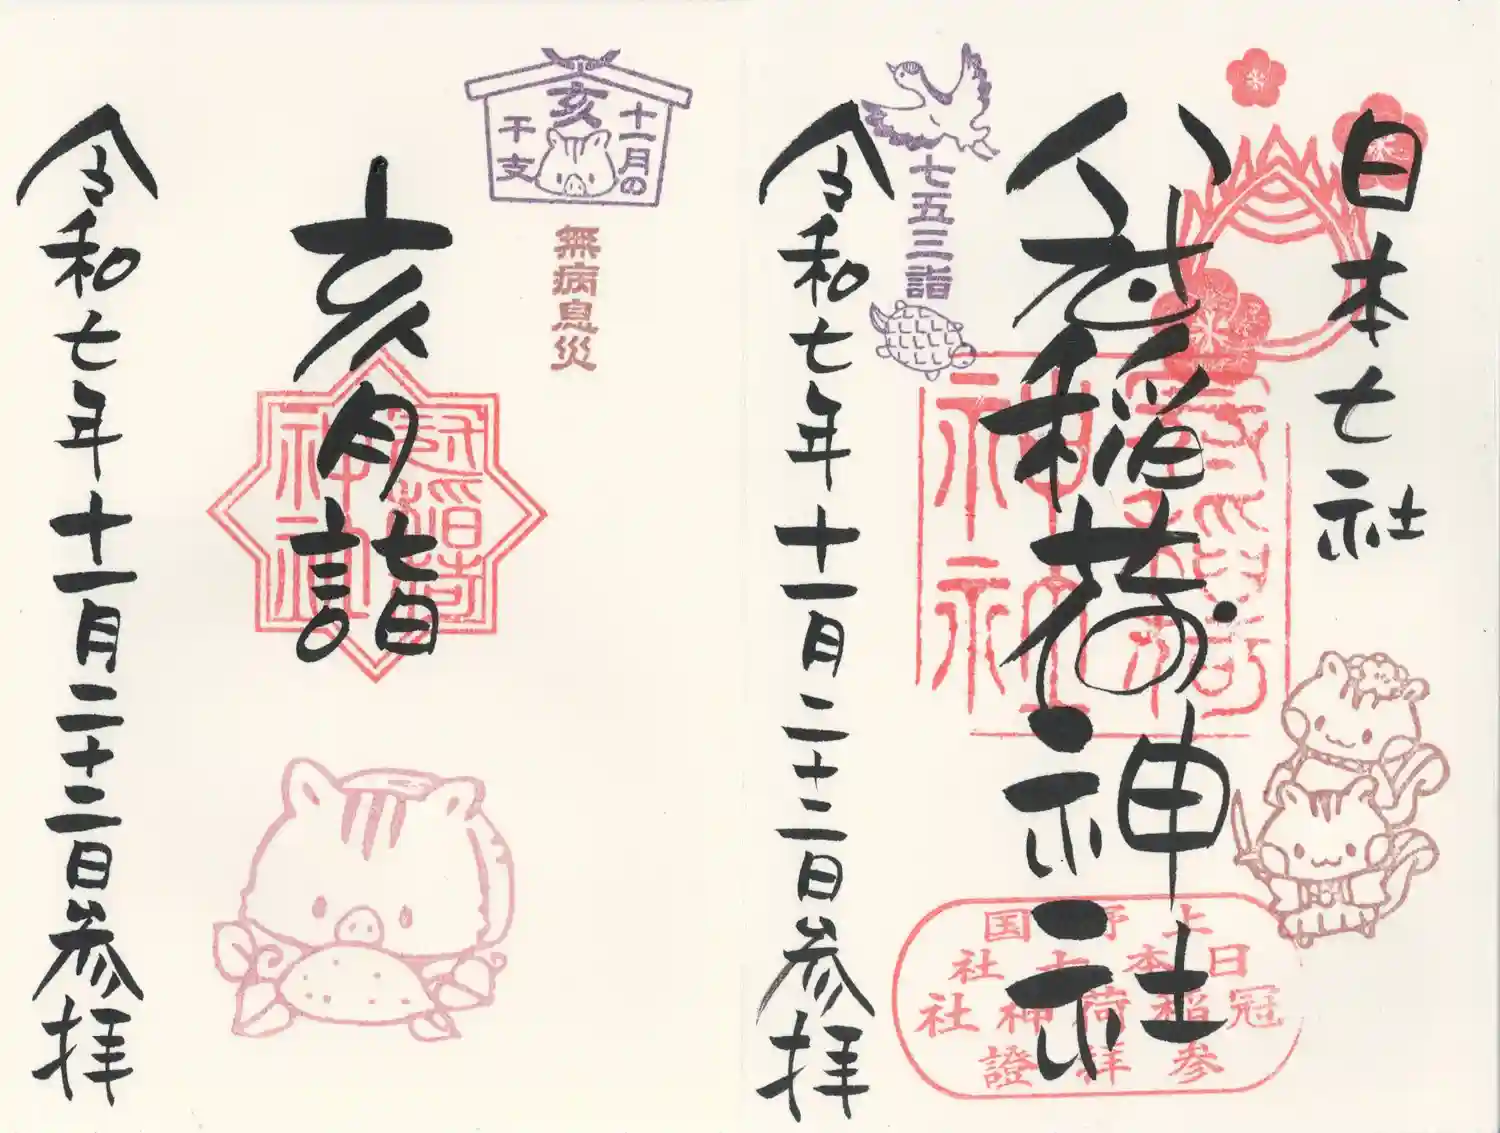 日本七社
冠稲荷神社
七五三詣
令和七年十一月二十二日参拝
冠稲荷
神社
上野国
日本七社
冠稲荷神社
参拝證
亥
十一月の
干支
無病息災
亥月詣
冠稲荷
神社
令和七年十一月二十二日参拝